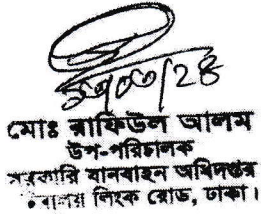 মোঃ রাফিউল আলম
উপ-পরিচালক
সরকারি যানবাহন অধিদপ্তর
লিংক রোড, ঢাকা।